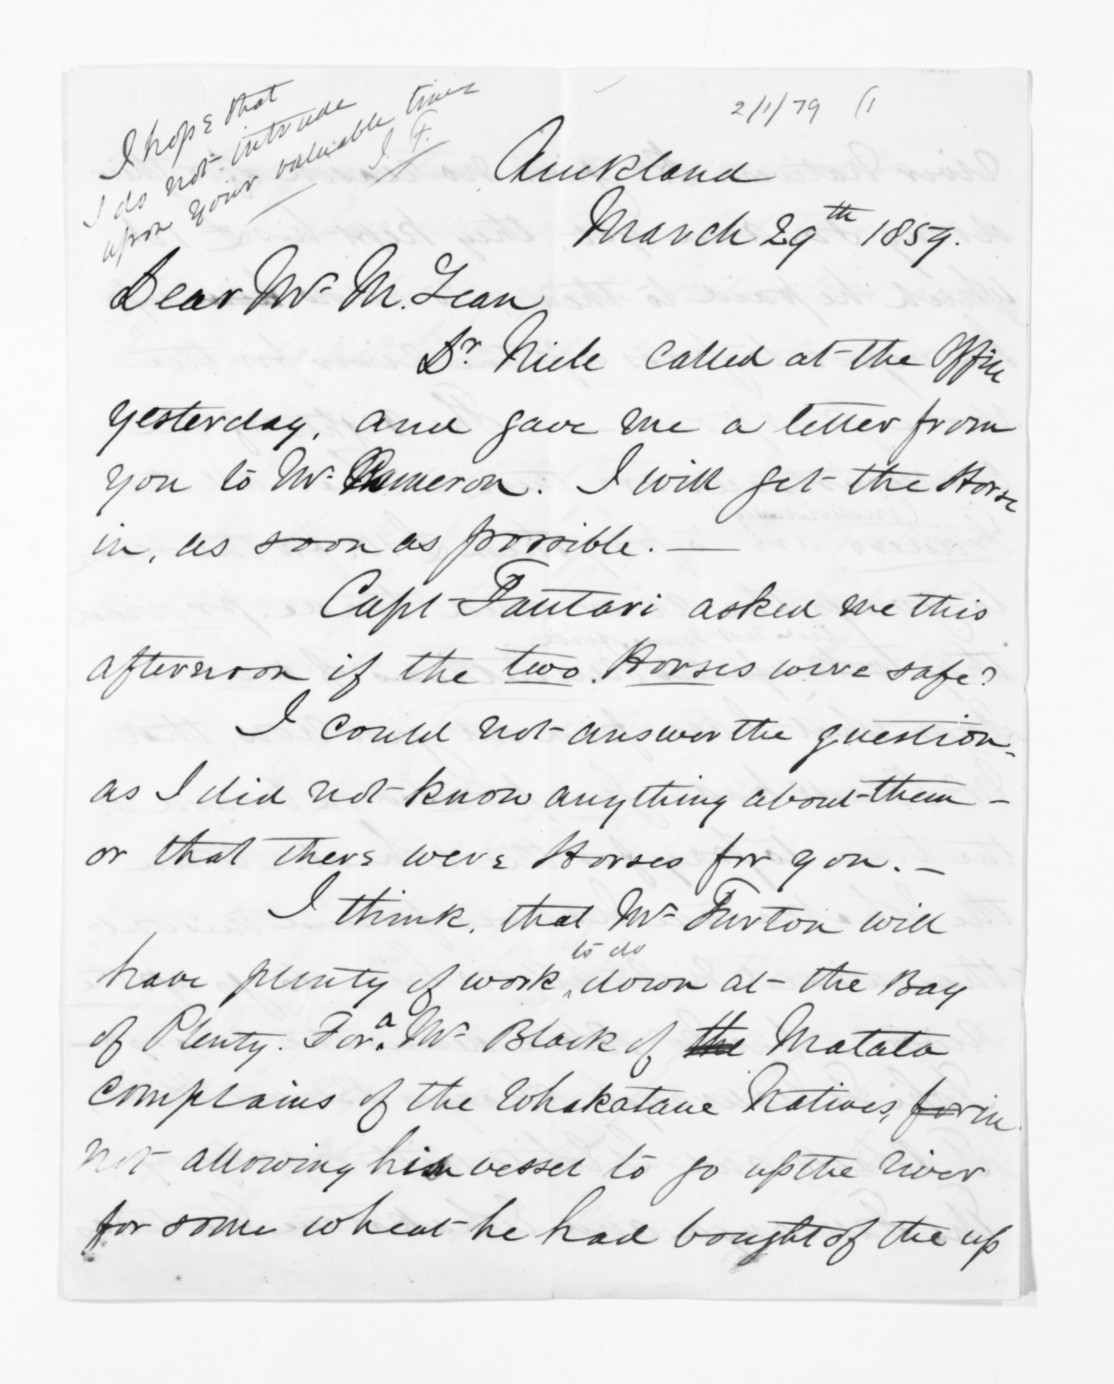 I hope that
I do not intrude
upon your valuable time
J. F.
2/1/79 (1
Auckland
March 29th 1859.
Dear Mr McLean
Dr Nicle called at the Office
yesterday, and gave me a letter from
you to Mr Cameron. I will get the Horse
in, as soon as possible. —
Capt Fautari asked me this
afternoon if the two Horses were safe?
I could not answer the question,
as I did not know anything about them –
or that there were Horses for you. –
I think, that Mr Turton will
have plenty of work, to do down at the Bay
of Plenty. For a Mr Black of the Matata
complains of the Whakatane Natives, for in
not allowing his vessel to go up the river
for some wheat he had bought of the up